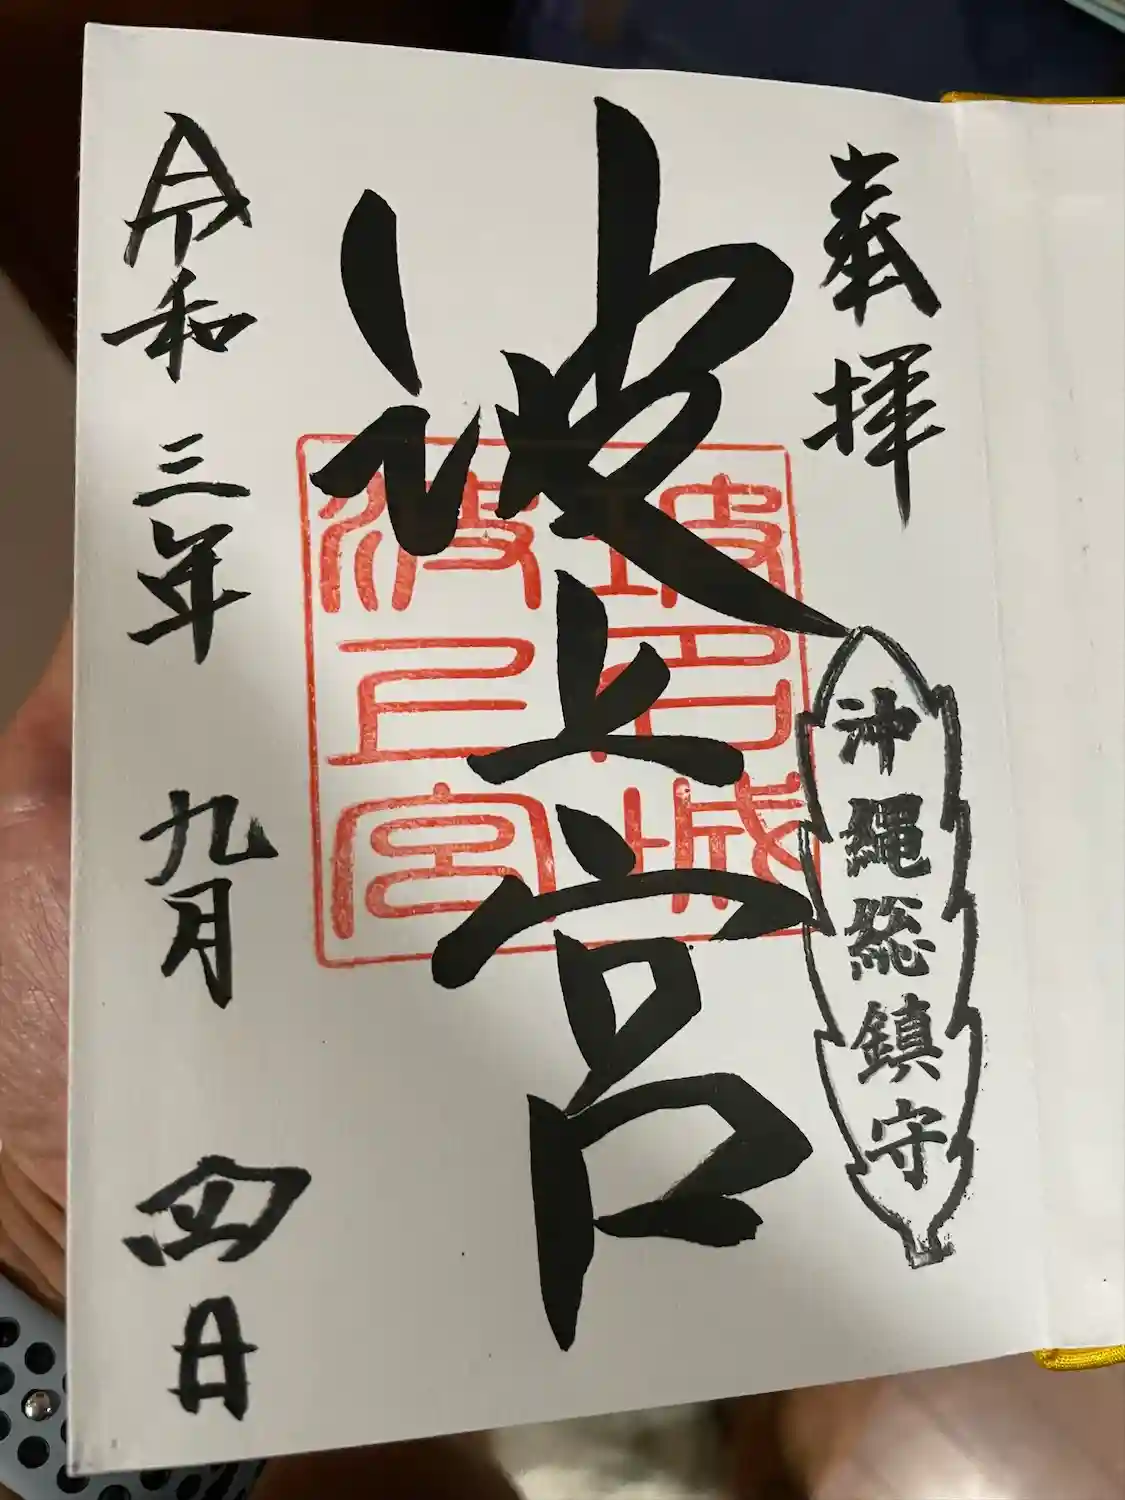 奉拝
沖縄総鎮守
波上宮
波上宮
令和三年 九月 四日